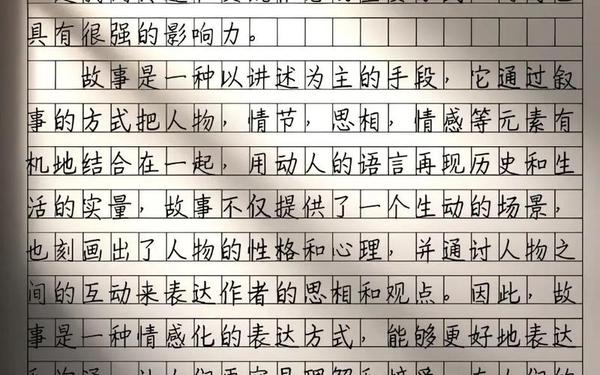 具有很强的影响力。
故事是一种以讲述为主的手段，它通过叙
事的方式把人物，情节，思相，情感等元素有
机地结合在一起，用动人的语言再现历史和生
活的实量，故事不仅提供了一个生动的场景，
也刻画出了人物的性格和心理，并通讨人物之
间的互动来表达作者的思相和观点。因此，故
事是一种情感化的表达方式，能够更好地表达